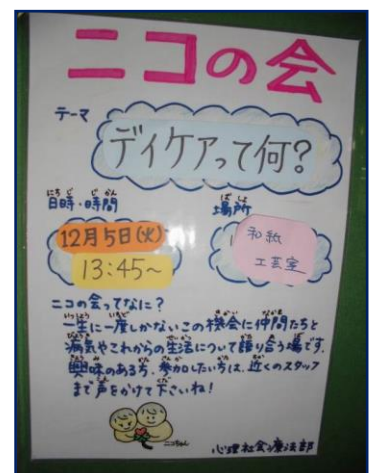 ニコの会
テーマ
デイケアって何?
日時・時間
場所
12月5日(火)
13:45~
和紙
工芸室
ニコの会ってなに?
一生に一度しかないこの機会に仲間たちと
病気やこれからの生活について語り合う場です。
興味のある方、参加したい方は、近くのスタッフ
まで声をかけて下さいね!
ニコちゃん
心理社会療法部